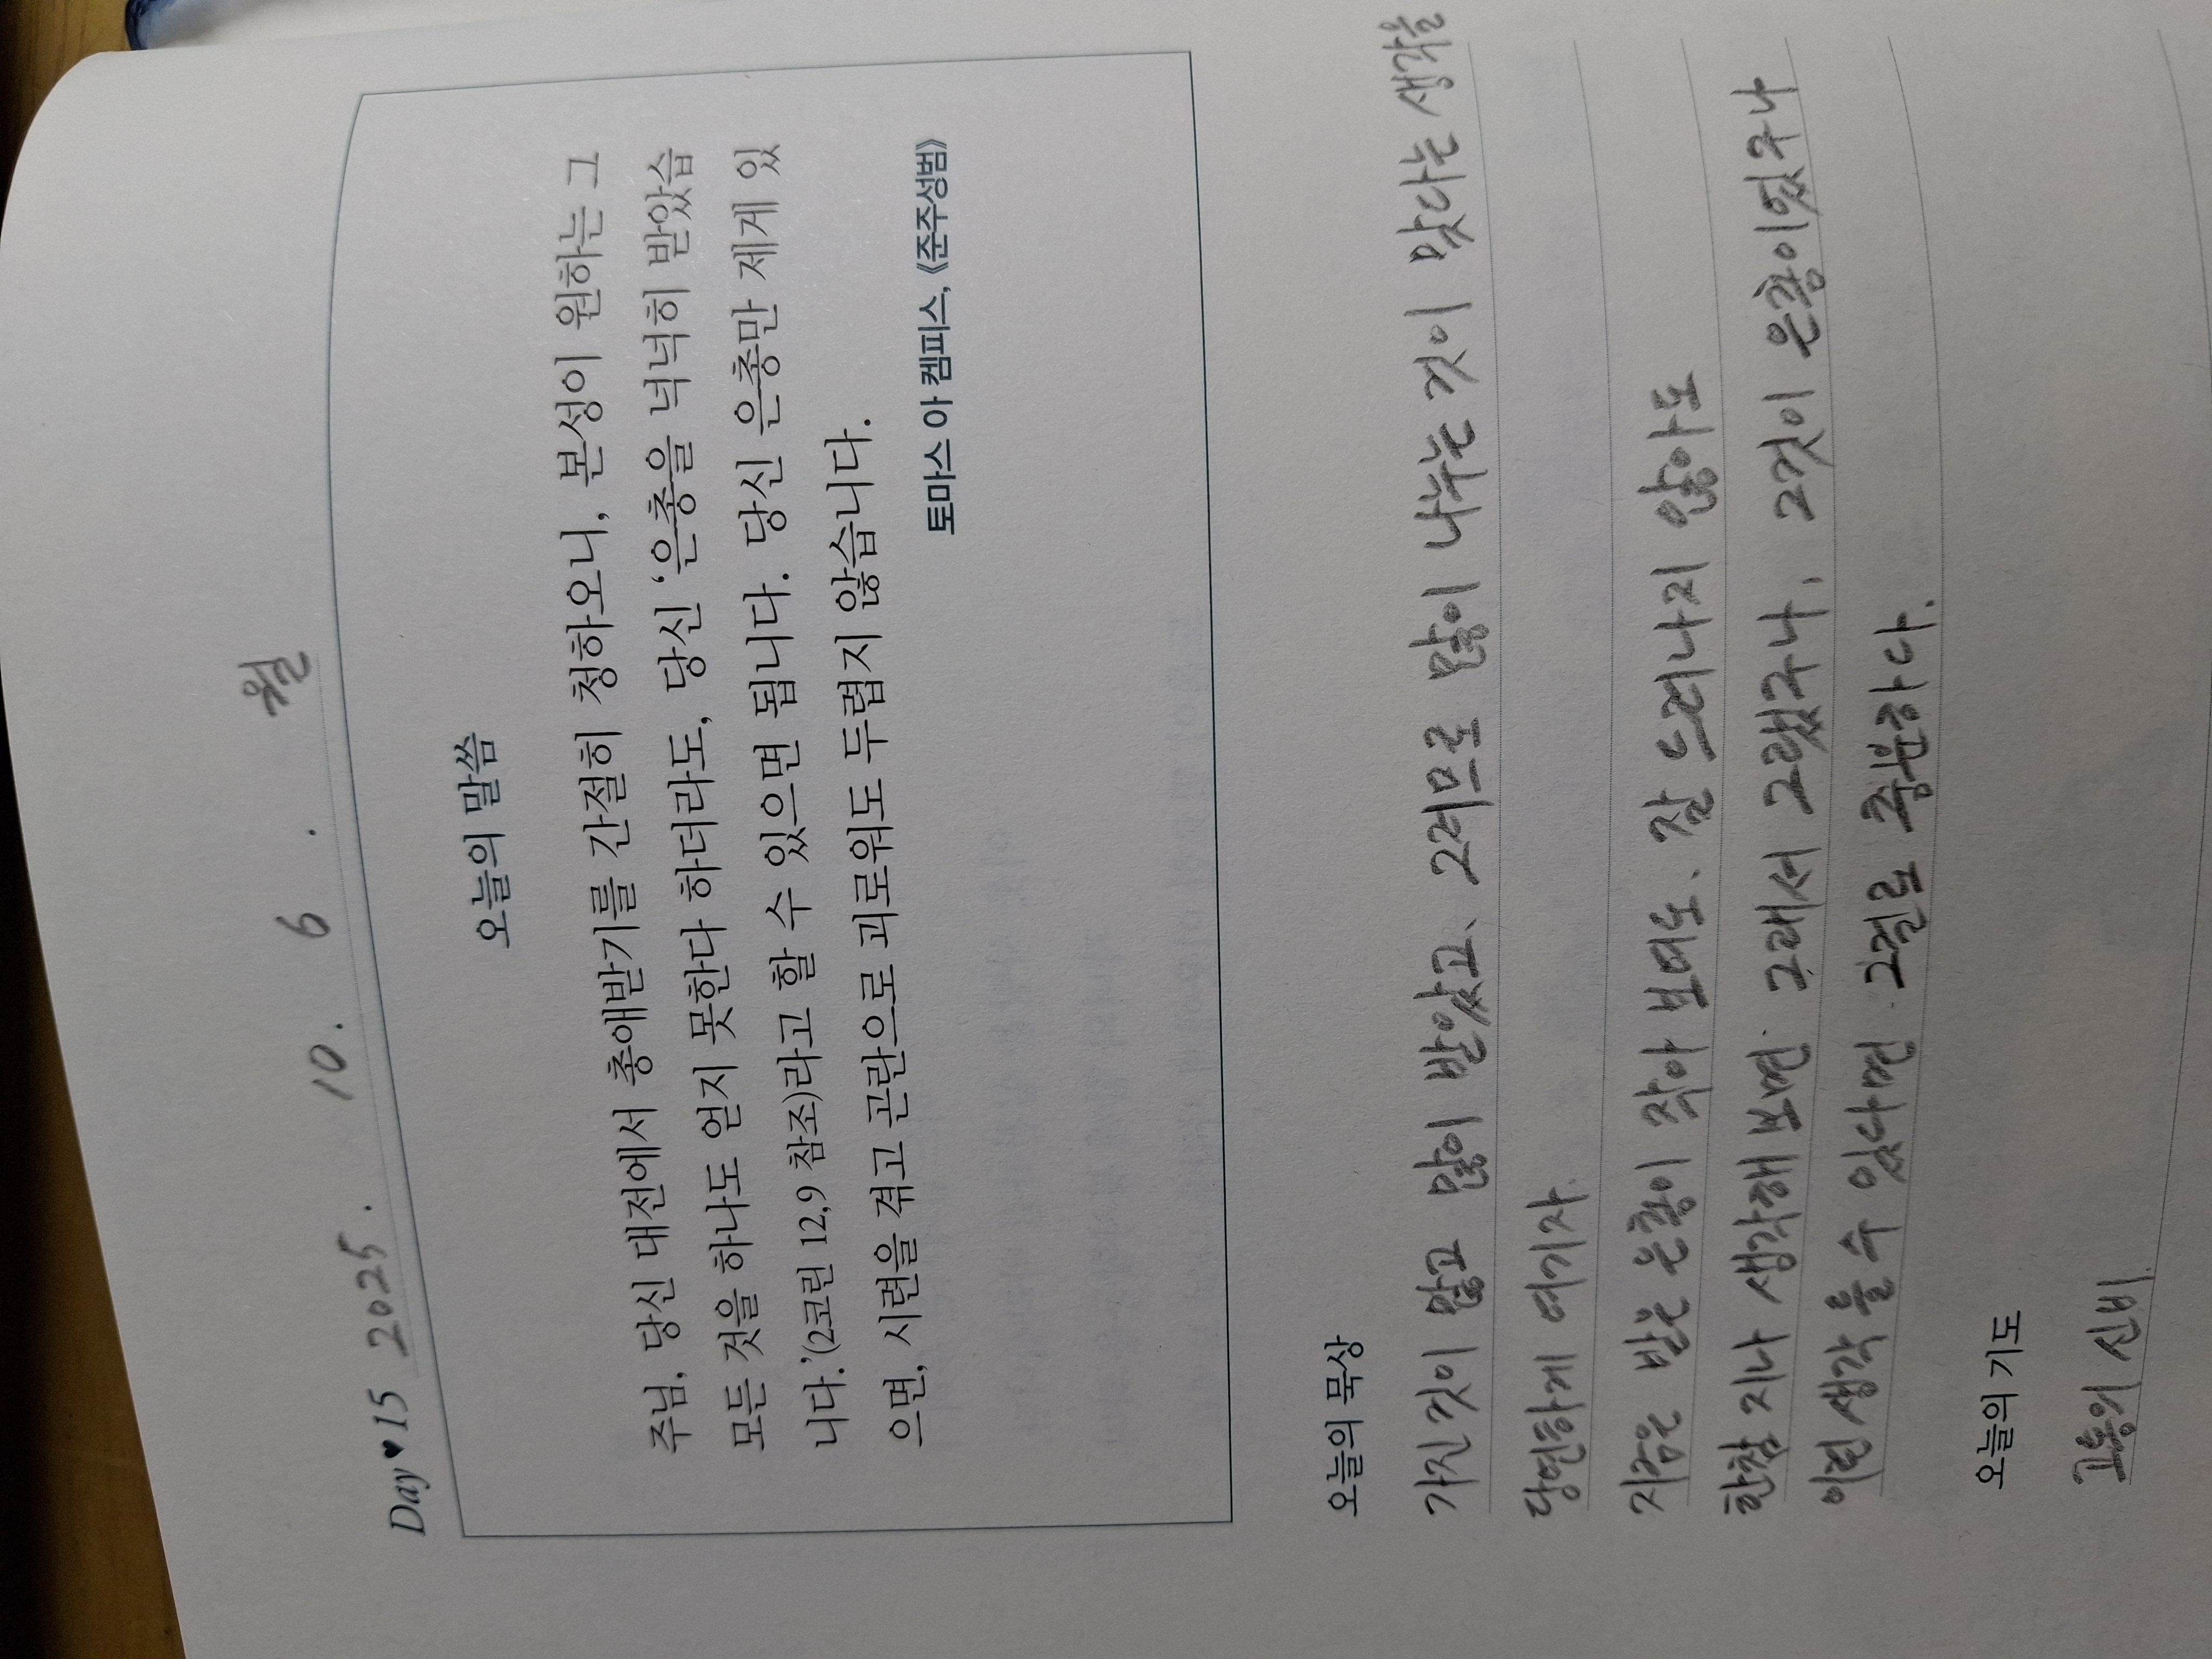 Day♥15 2025. 10. 6. 월
오늘의 말씀
주님, 당신 대전에서 총애받기를 간절히 청하오니, 본성이 원하는 그
모든 것을 하나도 얻지 못한다 하더라도, 당신 ‘은총을 넉넉히 받았습
니다.’(2코린 12,9 참조)라고 할 수 있으면 됩니다. 당신 은총만 제게 있
으면, 시련을 겪고 곤란으로 괴로워도 두렵지 않습니다.
토마스 아 켐피스, 《준주성범》
오늘의 묵상
가진 것이 많고 많이 받았고, 그러므로 많이 나누는 것이 맞다는 생각을
당연하게 여기자.
지금은 받은 은총이 작아 보여도, 잘 드러나지 않아도
한참 지나 생각해 보면. 그래서 그랬구나, 그것이 은총이었구나
이런 생각 들 수 있다면. 그걸로 충분하다.
오늘의 기도
고통의 신비.